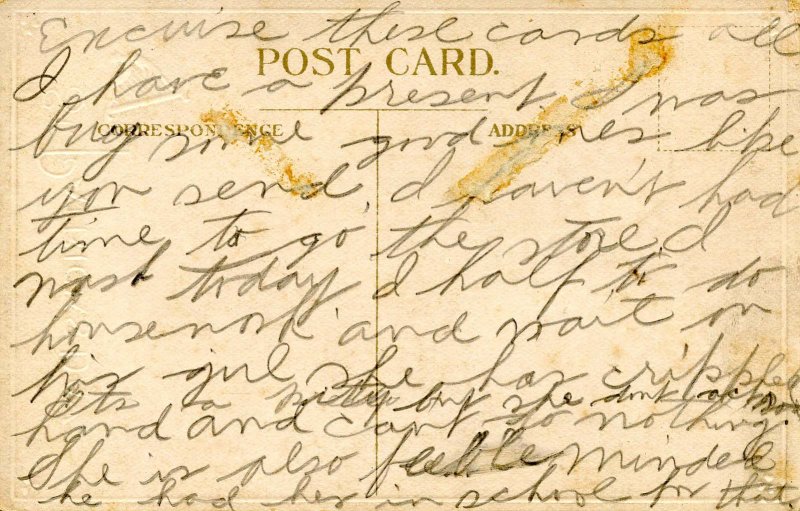 Encuise these cards all
POST CARD.
I have a present I was
CORRESPONDENCE
ADDRESS
buy some good ones like
you send, I haven't had
time to go the store. I
wash today I half to do
housework and wait on
his girl she has crippled
its a pitty but she dont act
hand and cant do nothing.
She is also feeble minded
he had her in school for that.